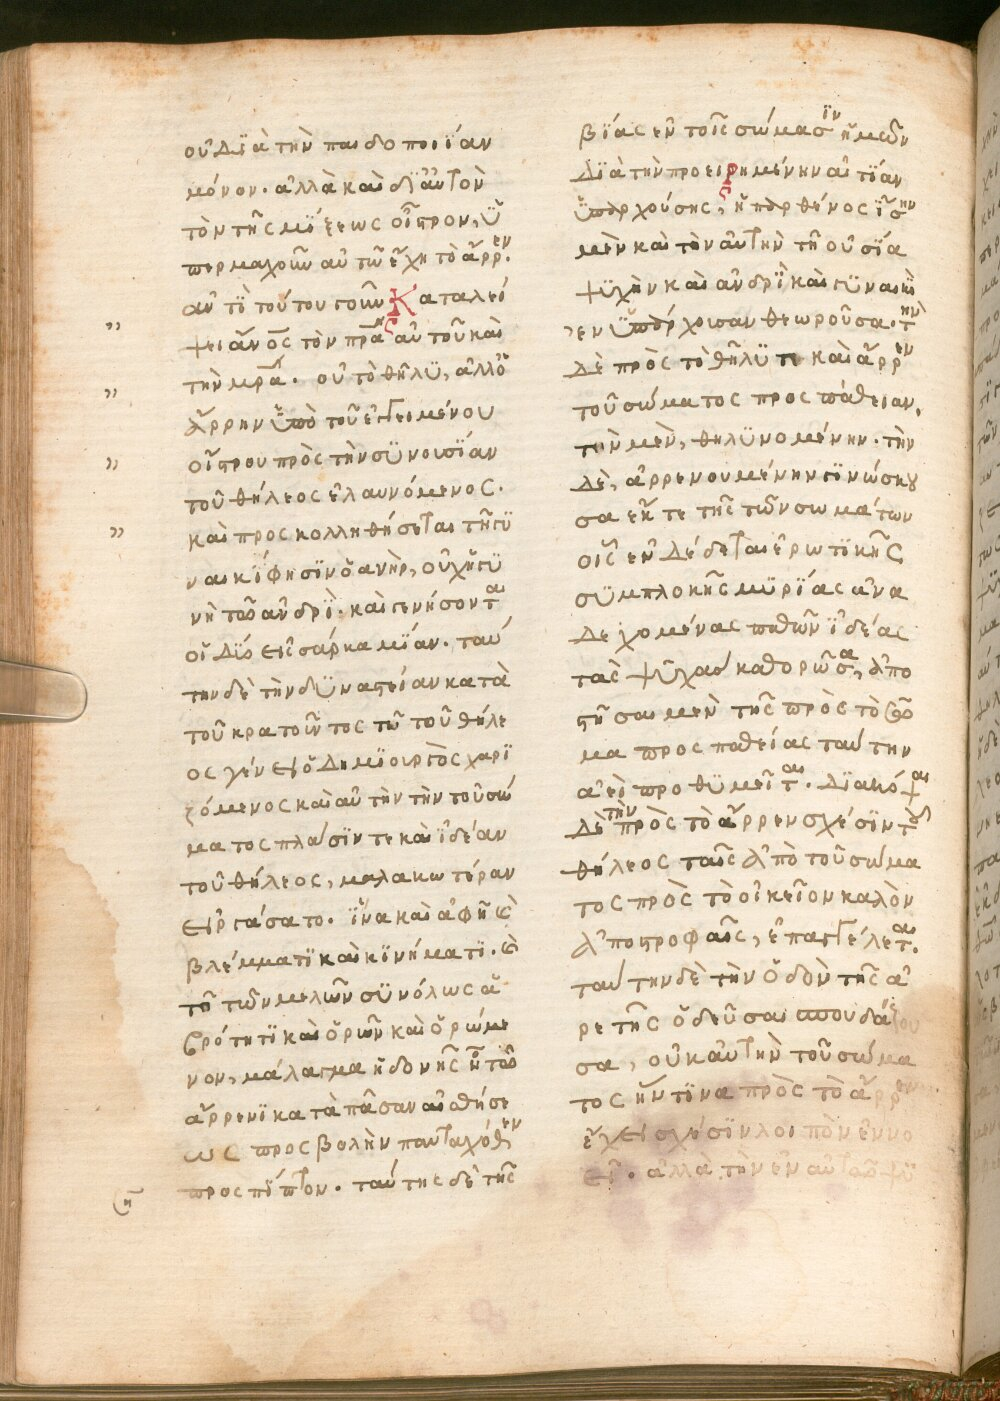 οὐ διὰ τὴν παιδοποιΐαν
μόνον· ἀλλὰ καὶ δι' αὐτὸν
τὸν τῆς μίξεως οἶστρον, ὑ
περμαχοῦν αὐτῶ ἔχη τὸ ἄρρεν·
ἀντὶ τούτου γοῦν καταλεί
ψει ἄνος τὸν πρα αὐτοῦ καὶ
τὴν μρα· οὐ τὸ θῆλυ, ἀλλὸ
ἄρρην ὑπὸ τοῦ ἐντειμένου
οἴστρου πρὸς τὴν συνουσίαν
τοῦ θήλεος ἐλαυνόμενος·
καὶ προσκολληθήσεται τῆ γυ
ναικί φησιν ὁ ἀνὴρ, οὐχ ἡ γυ
νὴ τῶ ἀνδρὶ· καὶ γενήσονται
οἱ δύο εἰς σάρκα μίαν· ταύ
την δὲ τὴν δυναστείαν κατὰ
τοῦ κρατοῦντος τῶ τοῦ θήλε
ος γένει ὁ δημιουργὸς χαρι
ζόμενος καὶ αὐτὴν τὴν τοῦ σώ
ματος πλάσιν τε καὶ ἰδέαν
τοῦ θήλεος, μαλακωτέραν
εἰργάσατο· ἵνα καὶ ἁφῆ καὶ
βλέμματι καὶ κινήματι· καὶ
τῆ τῶν μελῶν συνόλως ἁ
βρότητι καὶ ὁρῶν καὶ ὁρώμε
νον, μάλαγμα ἡδονῆς ἦ τῶ
ἄρρενι κατὰ πᾶσαν αἰσθήσε
ως προσβολὴν πανταχόθεν
προσπίπτον· ταύτης δὲ τῆς
βίας ἐν τοῖς σώμασιν ἡμῶν
διὰ τὴν προειρημένην αἰτίαν
ὑπαρχούσης, ἡ παρθένος ἴσην
μὲν καὶ τὴν αὐτὴν τῆ οὐσία
ψυχὴν καὶ ἀνδρὶ καὶ γυναικὶ
ἐνυπάρχουσαν θεωροῦσα· τὴν
δὲ πρὸς τὸ θῆλυ τε καὶ ἄρρεν
τοῦ σώματος προσπάθειαν,
τὴν μὲν, θηλυνομένην· τὴν
δὲ, ἀρρενουμένην γινώσκου
σα ἔκ τε τῆς τῶν σωμάτων
οἷς ἐνδέδεται ἐρωτικῆς
συμπλοκῆς μυρίας ἀνα
δεχομένας παθῶν ἰδέας
τὰς ψυχὰς καθορῶσα, ἀπο
στῆσαι μὲν τῆς πρὸς τὸ σῶ
μα προσπαθείας ταύτην
ἀεὶ προθυμεῖται· διακόψαι
δὲ τὴν πρὸς τὸ ἄρρεν σχέσιν τοῦ
θήλεος ταῖς ἀπὸ τοῦ σώμα
τος πρὸς τὸ οἰκεῖον καλὸν
ἀποστροφαῖς, ἐπαγγέλεται·
ταύτην δὲ τὴν ὁδὸν τῆς ἀ
ρετῆς ὁδεῦσαι σπουδάζου
σα, οὐκ αὐτὴν τοῦ σώμα
τος ἥντινα πρὸς τὸ ἄρρεν
ἔχει σχέσιν λοιπὸν ἐννο
εῖ· ἀλλὰ τὴν ἐν αὐτῶ ψυ